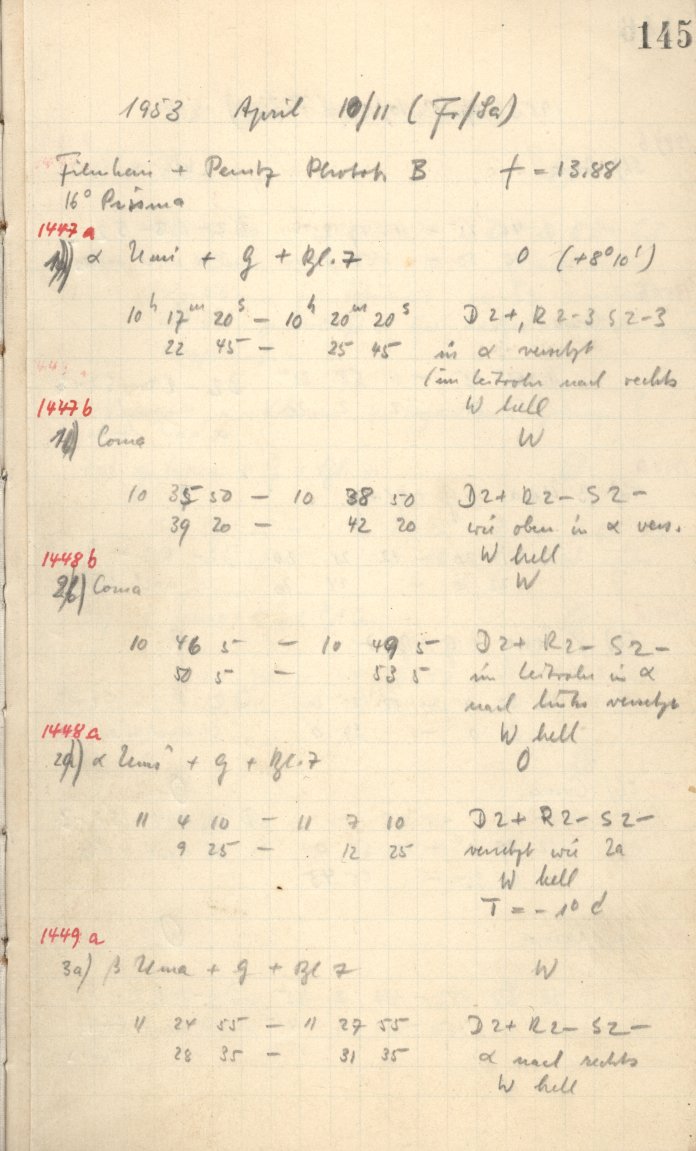 145
1953 April 10/11 (Fr/Sa)
+ Photoh B f = 13.88
16° Prisma
1447a
α Umi + G + Bl. 7 O (+8°10')
10h 17m 20s – 10h 20m 20s D2+, R2-3 S2-3
22 45 – 25 45 in α versetzt
(im Leitrohr nach rechts
W hell
1447b
Coma W
10 35 50 – 10 38 50 D2+ R2- S2-
39 20 – 42 20 wie oben in α vers.
W hell
1448b
2b) Coma W
10 46 5 – 10 49 5 D2+ R2- S2-
50 5 – 53 5 im Leitrohr in α
nach links versetzt
W hell
1448a
2a) α Umi + G + Bl. 7 O
11 4 10 – 11 7 10 D2+ R2- S2-
9 25 – 12 25 versetzt wie 2a
W hell
T = -1°
1449a
3a) β Uma + G + Bl 7 W
11 24 55 – 11 27 55 D2+ R2- S2-
28 35 – 31 35 α nach rechts
W hell